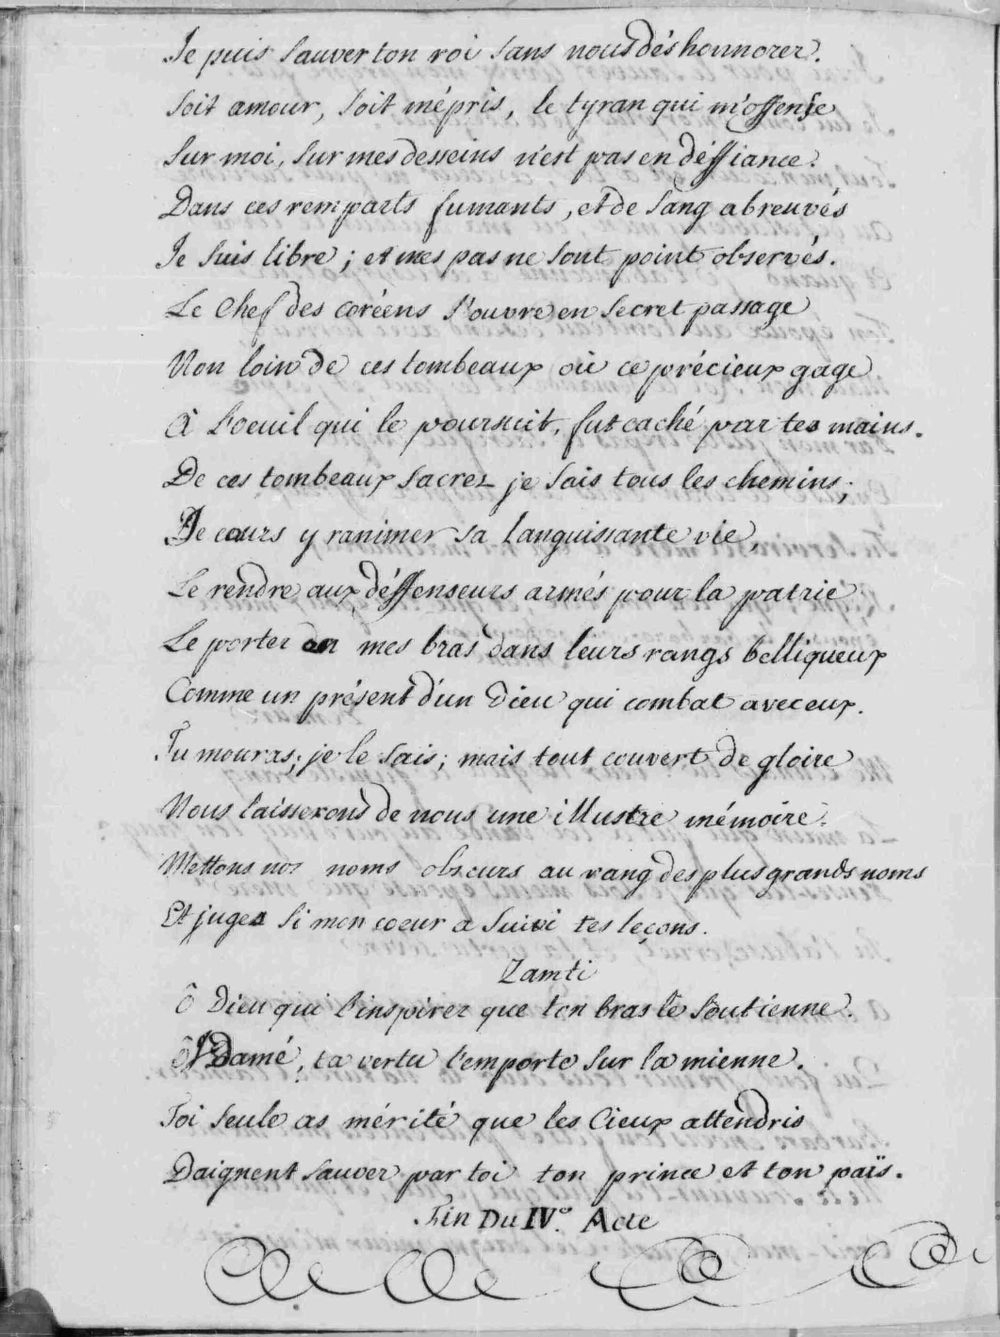 Je puis sauver ton roi sans nous déshonnorer.
Soit amour, soit mépris, le tyran qui m'offense
Sur moi, sur mes desseins n'est pas en déffiance.
Dans ces remparts fumants, et de sang abreuvés
Je suis libre ; et mes pas ne sont point observés.
Le Chef des coréens s'ouvre un secret passage
Non loin de ces tombeaux où ce précieux gage
À l'oeuil qui le poursuit, fut caché par tes mains.
De ces tombeaux sacrez je sais tous les chemins ;
Je cours y ranimer sa languissante vie,
Le rendre aux déffenseurs armés pour la patrie
Le porter en mes bras dans leurs rangs belliqueux
Comme un présent d'un Dieu qui combat avec eux.
Tu mouras ; je le sais ; mais tout couvert de gloire
Nous laisserons de nous une illustre mémoire.
Mettons nos noms obscurs au rang des plus grands noms
Et juges si mon coeur a suivi tes leçons.
Zamti
Ô Dieu qui l'inspirez que ton bras le soutienne.
Ô Idamé, ta vertu l'emporte sur la mienne.
Toi seule as mérité que les Cieux attendris
Daignent sauver par toi ton prince et ton païs.
Fin Du IVe. Acte